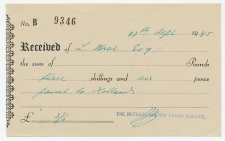 No. B 9346
27th Sept 1945
Received of L. West Esq
the sum of Pounds
three shillings and six pence
parcel to Holland
£ 3/6 THE NETHERLANDS